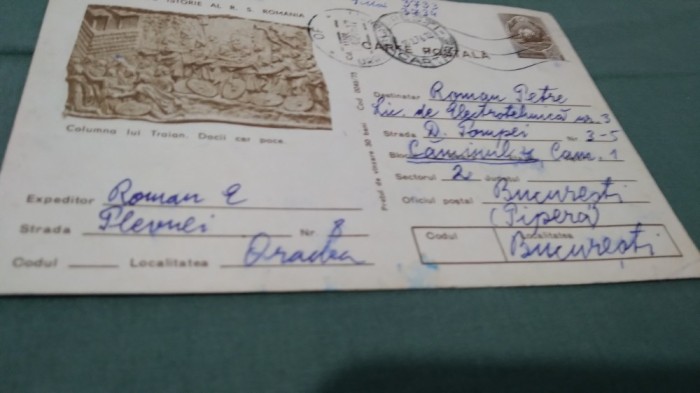 ISTORIE AL R. S. ROMANIA
CARTE POȘTALĂ
Columna lui Traian. Dacii cer pace.
Destinatar Roman Petre
Lic. de Electrotehnică nr. 3
Strada D. Pompei Nr 3-5
Caminul Cam. 1
Sectorul 2 Județul
Oficiul postal București
(Pipera)
Codul Localitatea
București
Expeditor Roman E
Strada Plevnei Nr. 8
Codul Localitatea Oradea
Prețul de vînzare 30 bani